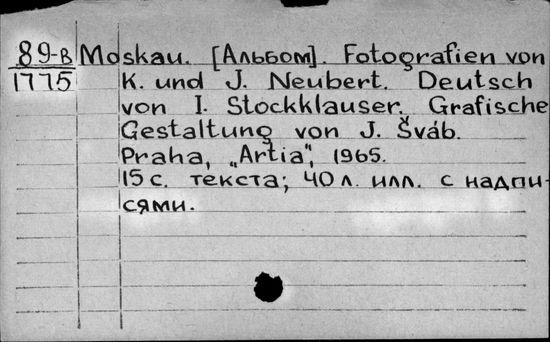 89-в Moskau. [Альбом]. Fotografien von
1775 K. und J. Neubert. Deutsch
von I. Stockklauser. Grafische
Gestaltung von J. Šváb.
Praha, „Artia", 1965.
15 с. текста; 40 л. илл. с надпи-
сями.